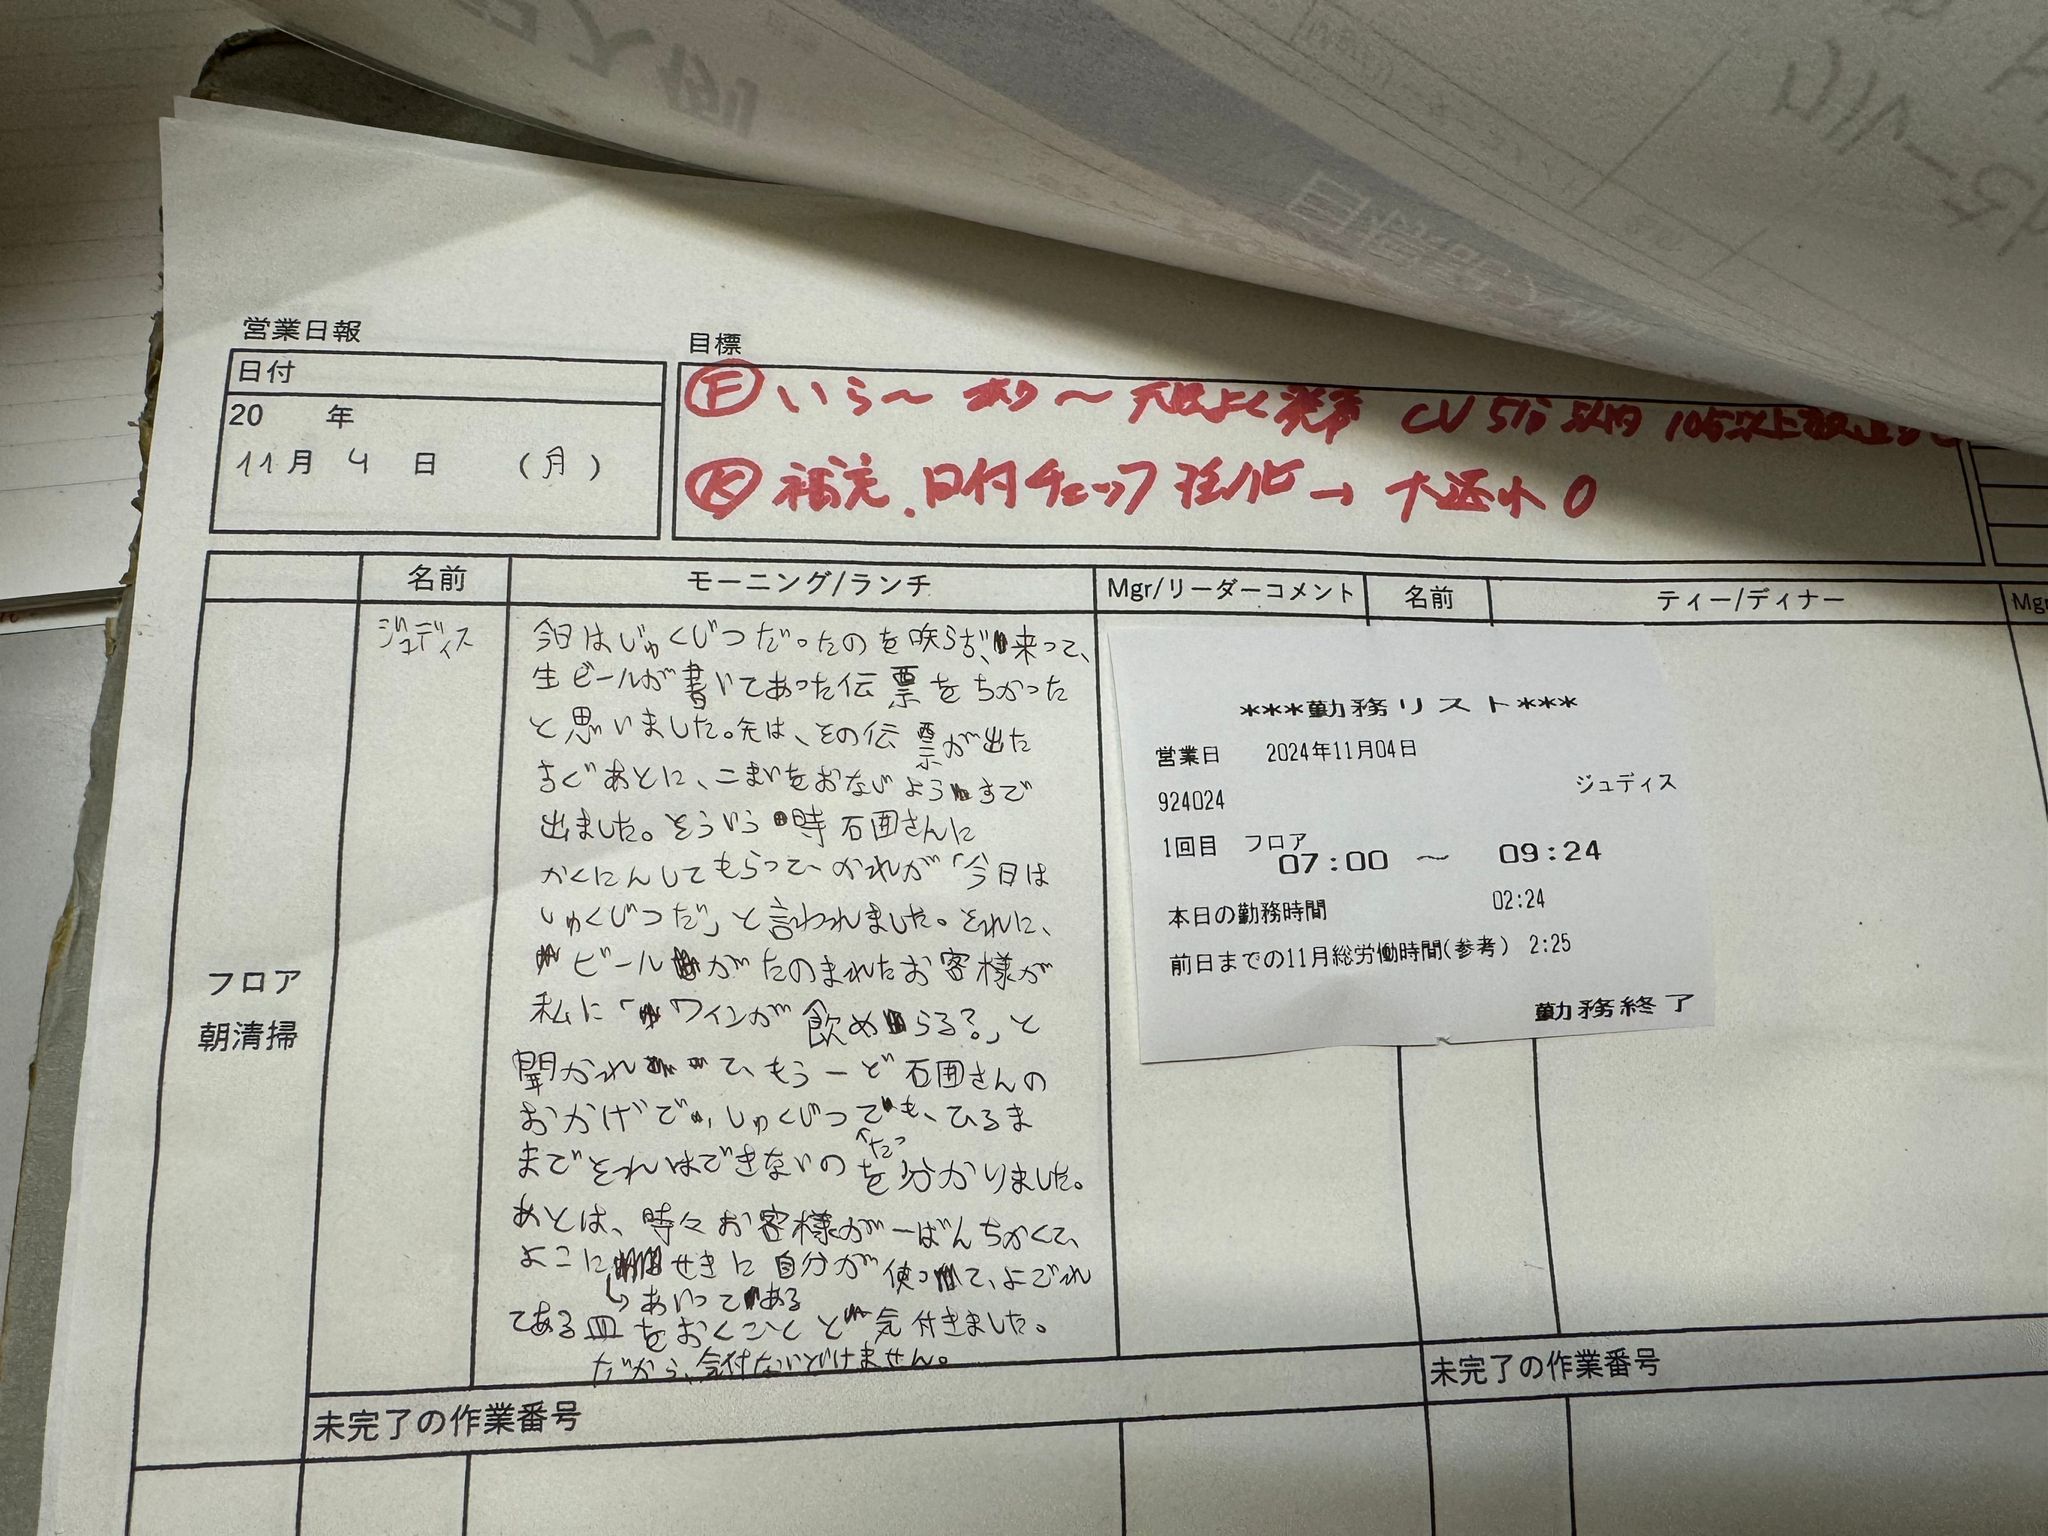 営業日報
日付
20 年
11月 4 日 (月)
目標
Ⓕ いら〜 あり〜 CV 5分以内 10分以上
Ⓚ 補充、日付チェック →
名前
モーニング/ランチ
Mgr/リーダーコメント
名前
ティー/ディナー
Mgr
フロア
朝清掃
ジュディス
今日はじゅくじつだったのを知らず、来って、
生ビールが書いてあった伝票をちがった
と思いました。先は、その伝票が出た
すぐあとに、二まいをおなじようすで
出ました。そういう時石田さんに
かくにんしてもらって、かれが「今日は
しゅくじつだ」と言われました。それに、
ビールがたのまれたお客様が
私に「ワインが飲めらる?」と
聞かれて、もう一ど石田さんの
おかげで、しゅくじつでも、ひるま
までそれはできないのを分かりました。
だっ
あとは、時々お客様が一ばんちかくて、
よこにせきに自分が使って、よごれ
↳あいってある
てある皿をおくことど気付きました。
だから、気付ないといけません。
***勤務リスト***
営業日 2024年11月04日
924024 ジュディス
1回目 フロア
07:00 ～ 09:24
本日の勤務時間 02:24
前日までの11月総労働時間(参考) 2:25
勤務終了
未完了の作業番号
未完了の作業番号